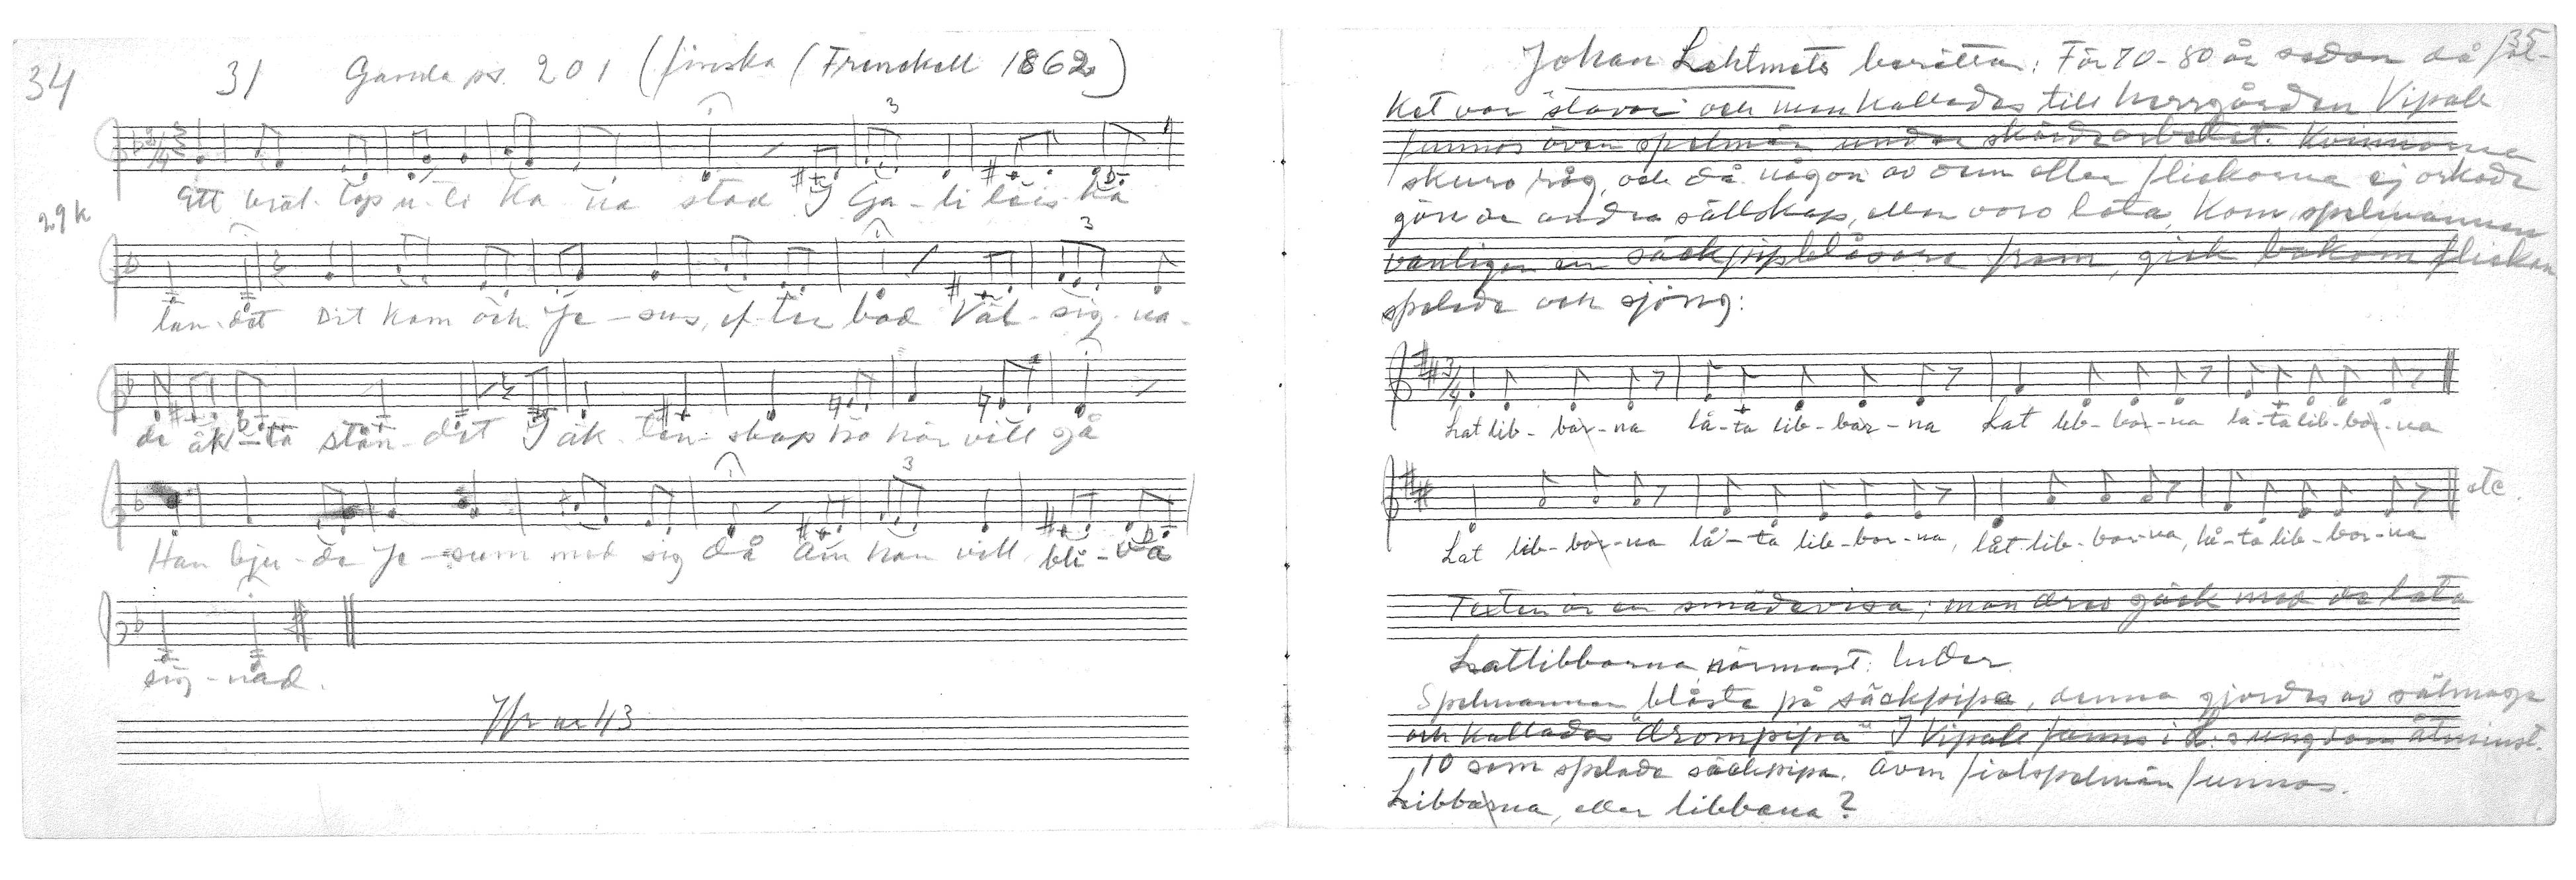 34
31 Gamla ps. 201 (finska (Frenckell 1862)
3
Ett bröl-lop u-ti Ka-na stad I Ga-li-léis-ka
29k
3
lan-det Dit kom och Je-sus, ef-ter bad Väl-sig-na-
de äk-ta stån-det I äk-ten-skap ho här vill gå
3
Han bju-de Je-sum med sig då Om han vill bli-va
sig-nad.
Jfr nr 43
35
Johan Lehtmets berättar: För 70-80 år sedan då fol-
ket var "slavar" och man kallades till herrgården Vipale
funnos även spelmän under skördearbetet. Kvinnorna
skuro råg, och då någon av dem eller flickorna ej orkade
göra de andra sällskap, eller voro lata, kom spelmannen
vanligen en säckpipblåsare fram, gick bakom flickan
spelade och sjöng:
Lat lib-bar-na la-ta lib-bar-na Lat lib-bar-na la-ta lib-bar-na
Lat lib-bar-na la-ta lib-bar-na, lat lib-bar-na, la-ta lib-bar-na
etc.
Texten är en smädevisa; man drev gäck med de lata
Latlibbarna närmast: luder
Spelmannen blåste på säckpipa, denna gjordes av sälmage
och kallades "drompipa" I Vipale funnos i L:s ungdom åtminst.
10 som spelade säckpipa. Även fiolspelmän funnos.
Libbarna, eller libbana?